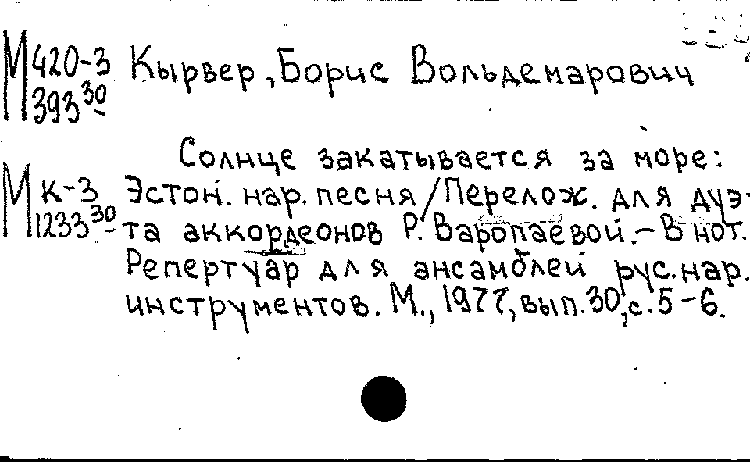 М 420-3 Кырвер, Борис Вольдемарович
393 30
Солнце закатывается за море:
М К-3 Эстон. нар. песня/Перелож. для дуэ-
1233 30 та аккордеонов Р. Варопаевой.-В нот.
Репертуар для ансамблей рус. нар.
инструментов. М., 1977, вып. 30, с. 5-6.